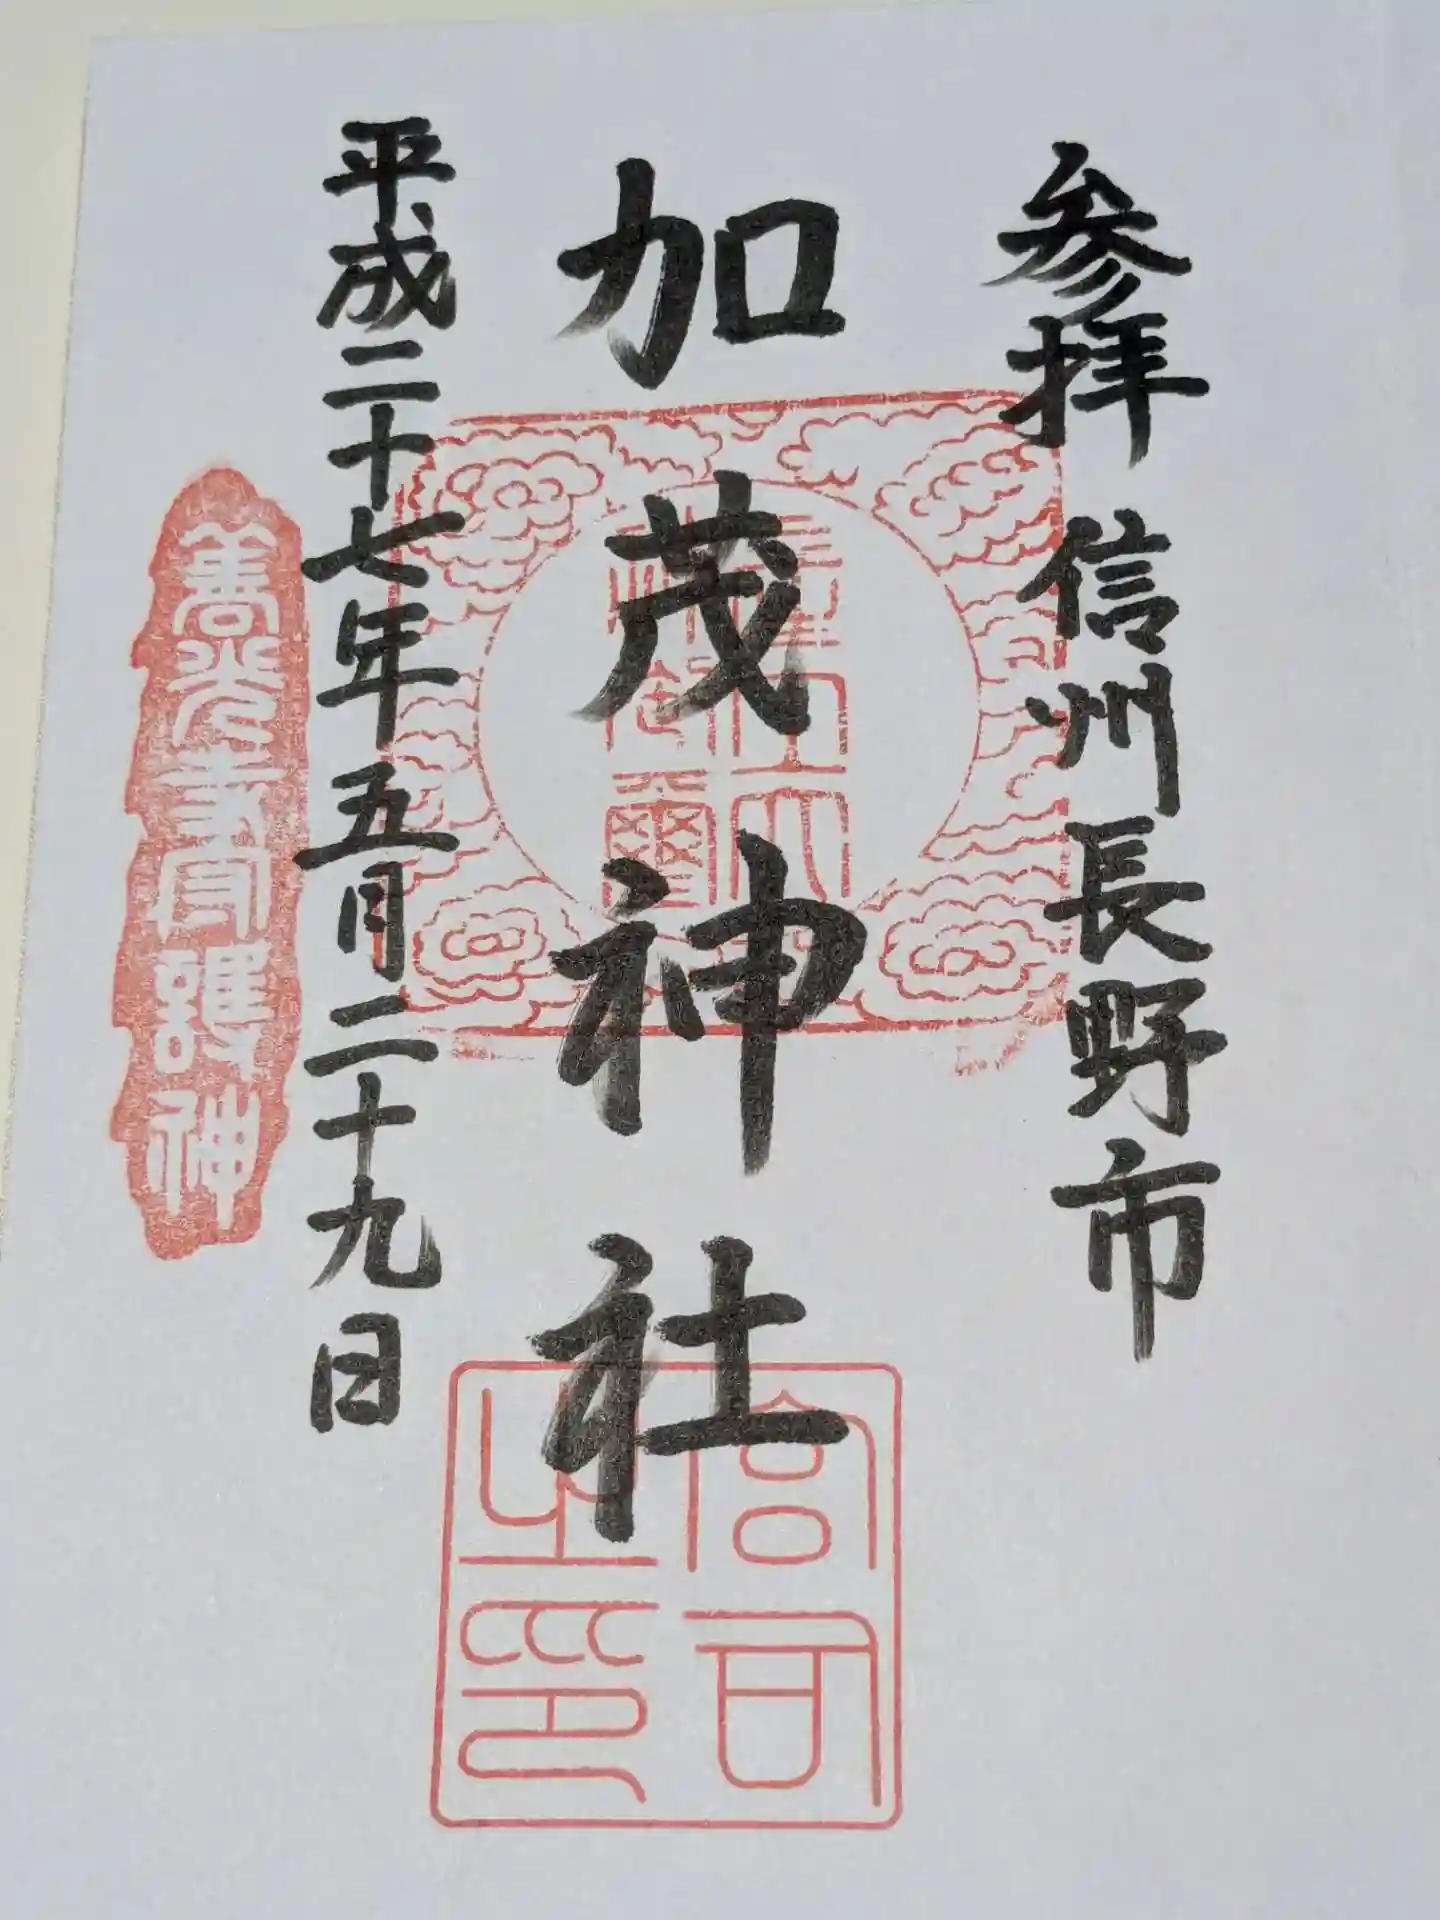 参拝 信州長野市
加茂神社
平成二十七年 五月二十九日
善光寺守護神
宮司之印